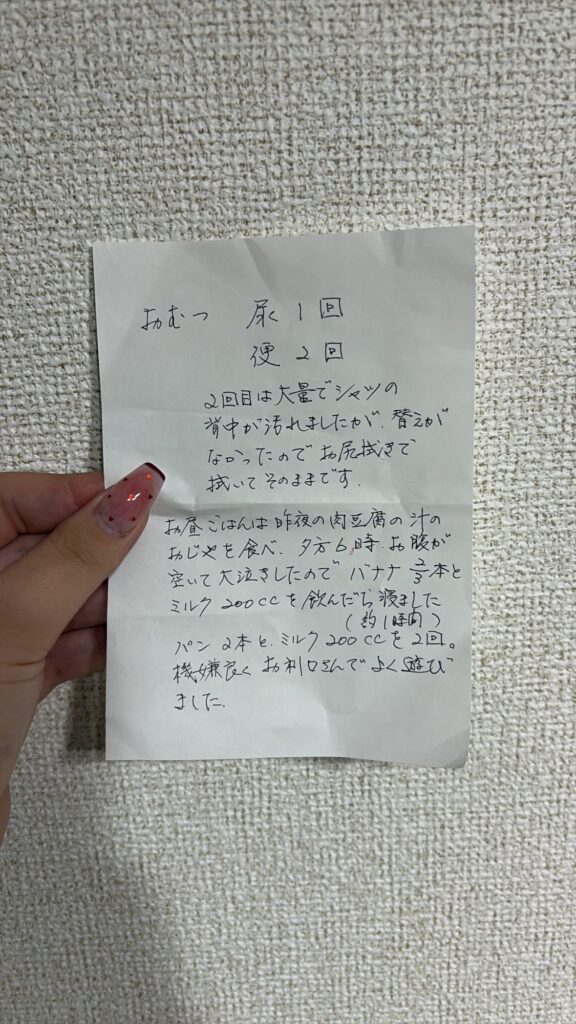 おむつ 尿1回
便2回
2回目は大量でシャツの
背中が汚れましたが、替えが
なかったのでお尻拭きで
拭いてそのままです.
お昼ごはんは昨夜の肉豆腐の汁の
おじやを食べ、夕方6時、お腹が
空いて大泣きしたのでバナナ2/3本と
ミルク200ccを飲んだら寝ました
(約1時間)
パン2本と、ミルク200ccを2回。
機嫌良くお利口さんでよく遊び
ました.